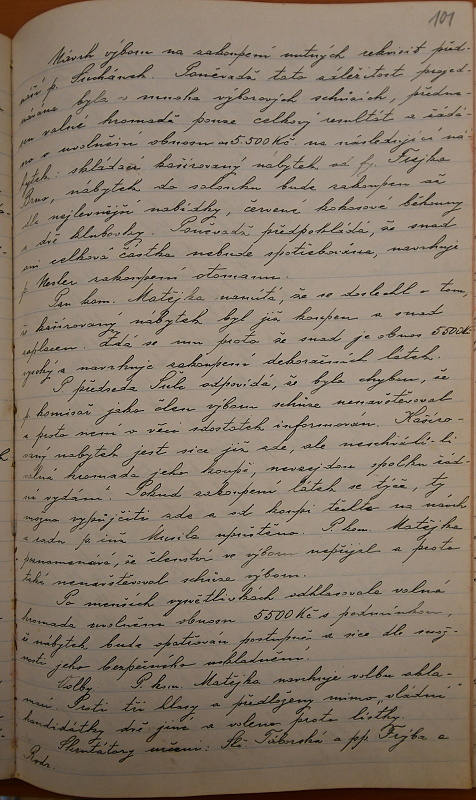 101
Návrh výboru na zakoupení nutných rekvisit před-
náší p. Suchánek. Poněvadž tato záležitost projed-
návána byla v mnoha výborových schůzích, předná-
ší valné hromadě pouze celkový resultát a žádá
o uvolnění obnosu 5.500 Kč na následující ná-
bytek: skládací kašírovaný nábytek od fy.
Brno, nábytek do salonku bude zakoupen až
dle nejlevnější nabídky, červené kokosové běhouny
a dvě klubovky. Poněvadž předpokládá, že snad
ani celková částka nebude spotřebována, navrhuje
p. Nesler zakoupení otomanu.
Pan kom. Matějka namítá, že se doslechl o tom,
že kašírovaný nábytek byl již koupen a snad
zaplacen. Zdá se mu proto že snad je obnos 5500 Kč
vysoký a navrhuje zakoupení dekoračních látek.
P. předseda Šulc odpovídá, že byla chybou, že
p. komisař jako člen výboru schůze nenavštěvoval
a proto není o věci dostateč informován. Kašíro-
vaný nábytek jest sice již zde, ale neschválí-li
valná hromada jeho koupě, nevzejdou spolku žád-
ná vydání. Pokud zakoupení látek se týče, ty
možno vypůjčiti zde a od koupi těchto na návrh
a radu p. inž. Musila upuštěno. P. kom. Matějka
poznamenává, že členství ve výboru nepřijal a proto
také nenavštěvoval schůze výboru.
Po menších vysvětlivkách odhlasovala valná
hromada uvolnění obnosu 5500 Kč s podmínkou,
že nábytek bude opatřován postupně a sice dle mož-
nosti jeho bezpečného uskladnění.
Volby. P. kom. Matějka navrhuje volbu akla-
mací. Proti tři hlasy a předloženy mimo „vládní"
kandidátky dvě jiné a voleno proto lístky.
Skrutátory určeni: Sl. Táborská a pp. Frýba a